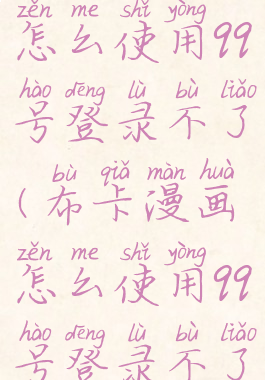 zěn me shǐ yòng
怎么使用99
hào dēng lù bù liǎo
号登录不了
bù qiǎ màn huà
(布卡漫画
zěn me shǐ yòng
怎么使用99
hào dēng lù bù liǎo
号登录不了